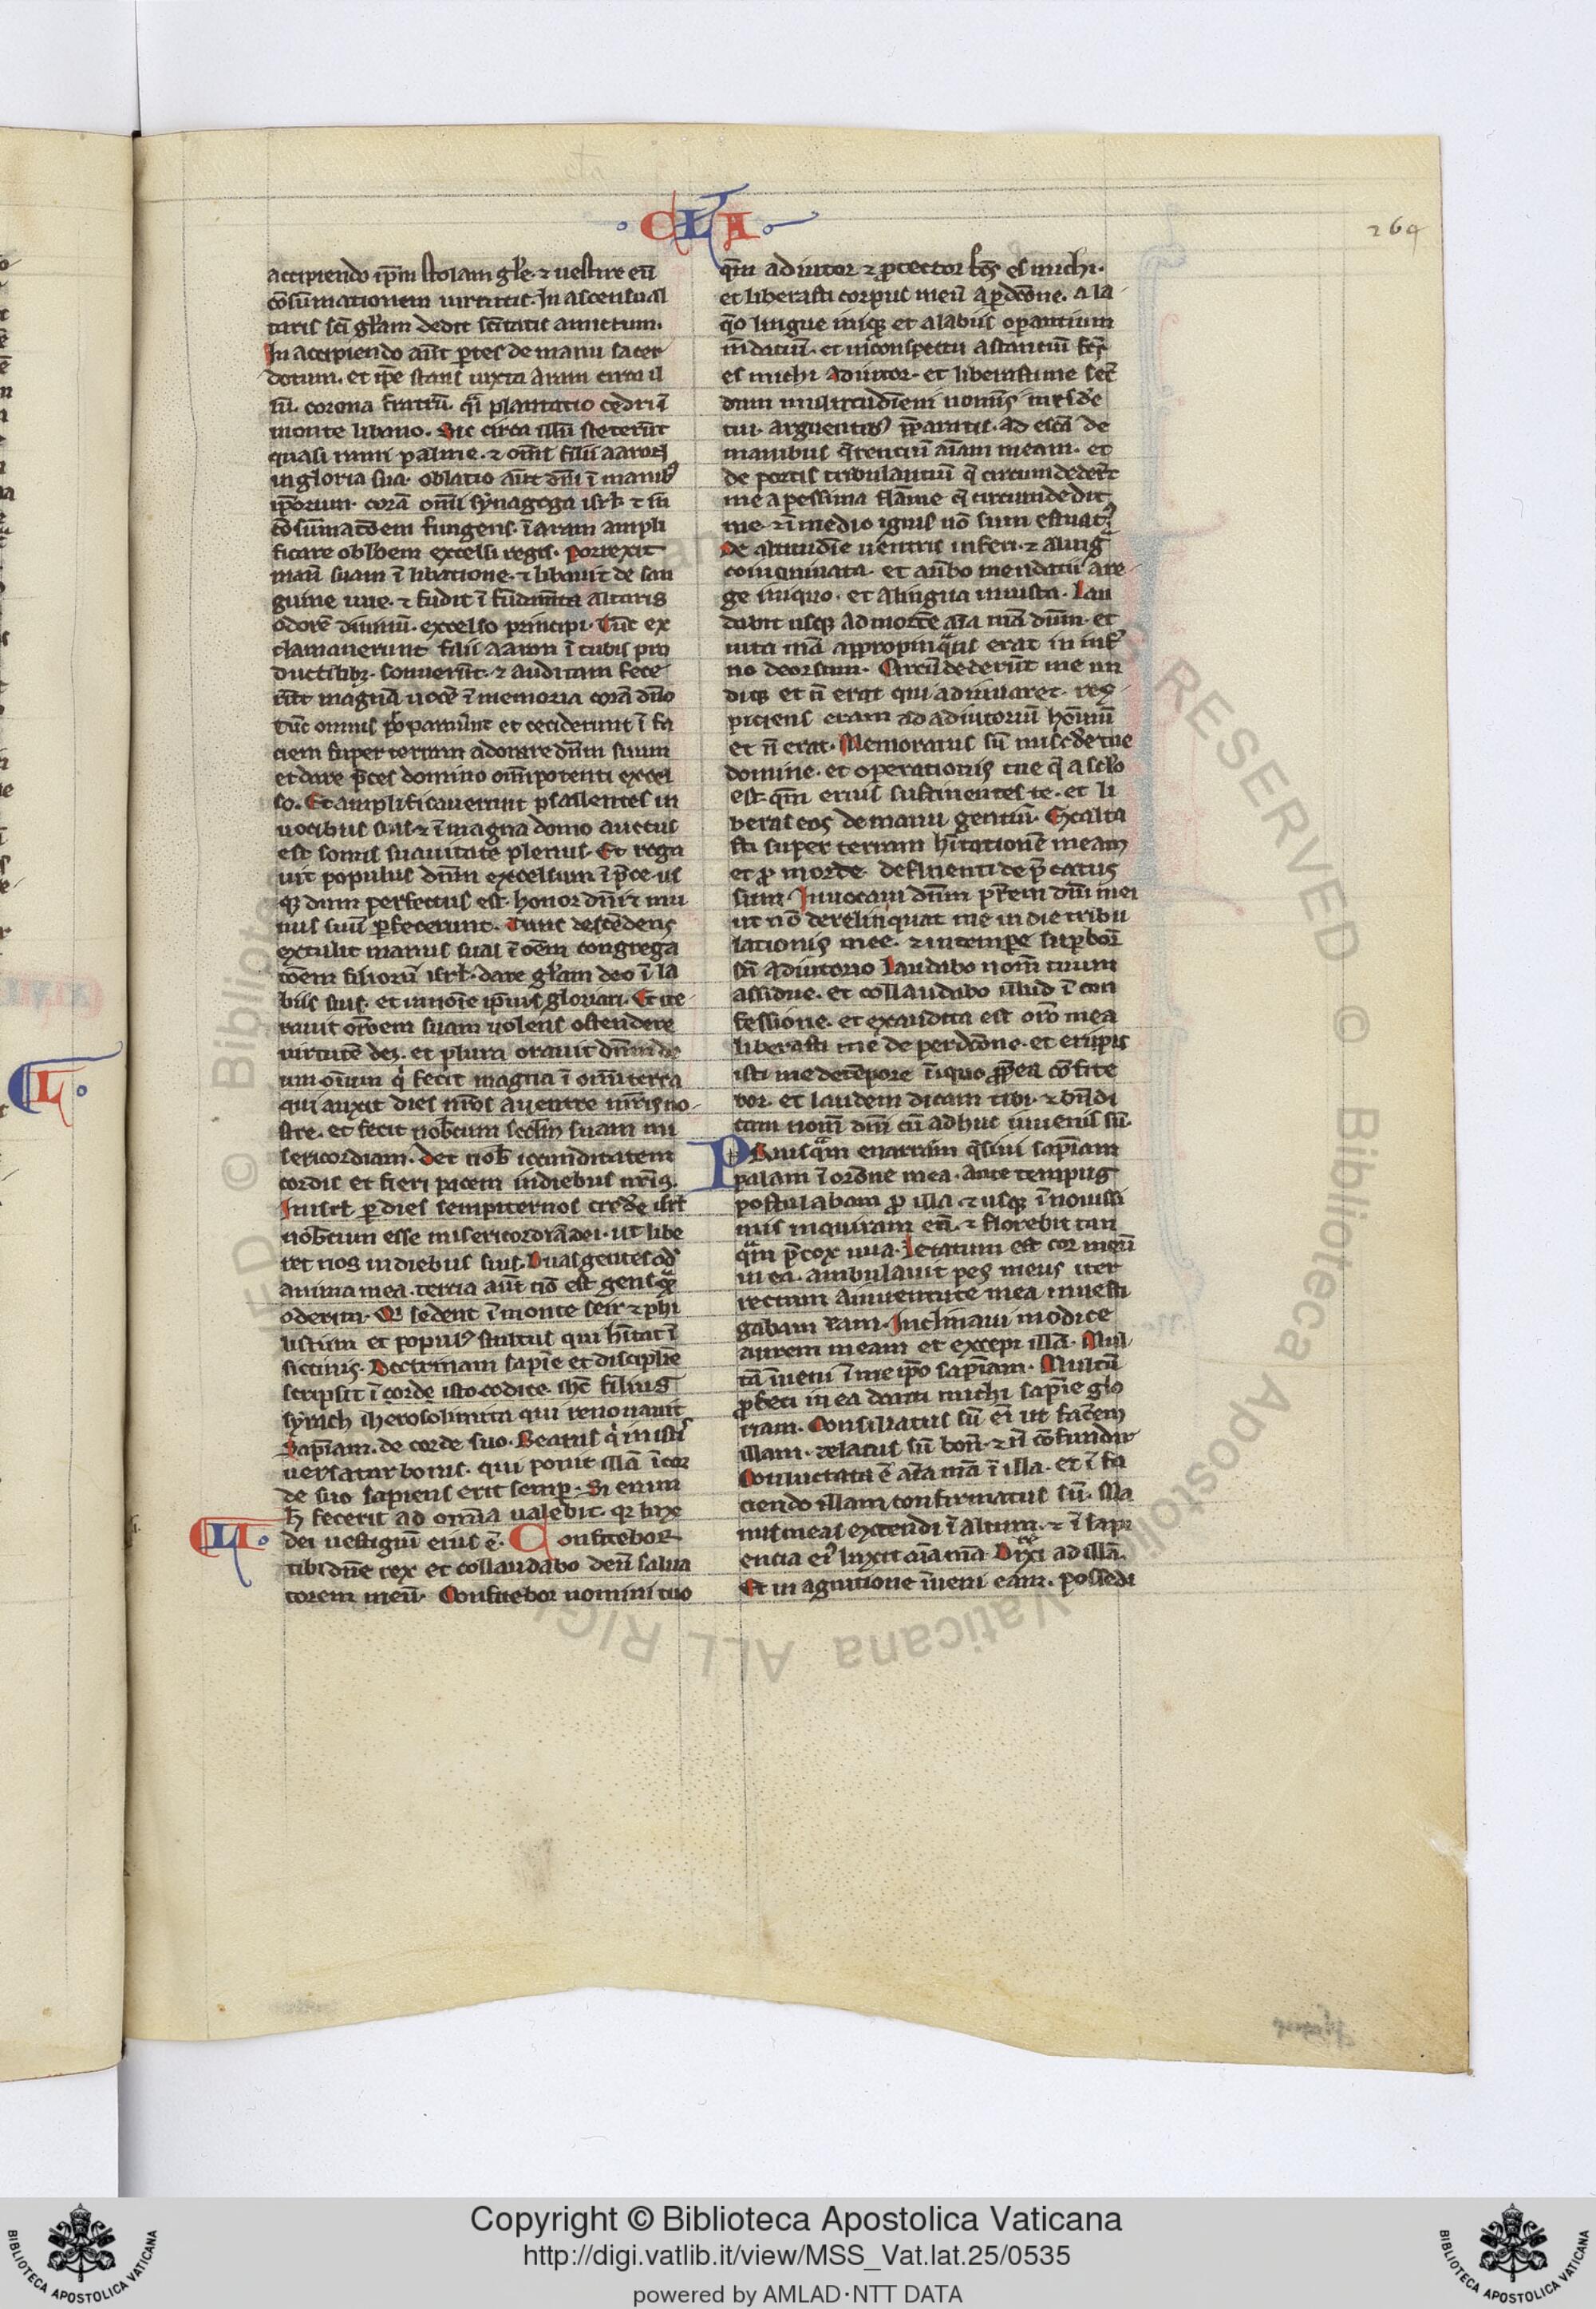 CLI
264
accipiendo ip̄m stolam gl̓e. ⁊ uestire eū
cōsūmationem uirtutis. In ascensu al
taris sc̄i gl̓am dedit sc̄itatis amictum.
In accipiendo aūt ꝑtes de manu sacer
dotum. et ip̄e stans iuxta aram circa il
lū. corona fratrū. q̄i plantatio cedri ī
monte libano. Sic circa illū steterūt
quasi rami palme. ⁊ om̄s filii aaron
in gloria sua. oblatio aūt dn̄i ī manibꝰ
ip̄orum. corā omi synagoga isrl̓. ⁊ in
cōsūmatōem fungens. ī aram ampli
ficare obl̓oem excelsi regis. Porrexit
manū suam ī libatione. ⁊ libauit de san
guine uue. ⁊ fudit ī fūdam̄ta altaris
odorē diuinū. excelso principi. Tūc ex
clamauerunt filii aaron ī tubis pro
ductilibꝫ. sonuerūt. ⁊ auditam fece
rūt magnā uocē ī memoria corā dn̄o
Tūc omnis pp̄ls parauer̄unt et ceciderunt ī fa
ciem super terram adorare dn̄m suum
et dare p̄ces domino om̄ipotenti excel
so. Et amplificauerunt psallentes in
uocibus suis ⁊ ī magna domo auctus
est sonus suauitate plenus. Et roga
uit populus dn̄m excelsum ī p̄ce. us
qꝫ dum perfectus est honor dn̄i ⁊ mu
nus suū ꝑfecerunt. Tunc descēdens
extulit manus suas ī oēm congrega
tōem filiorū isrl̓. dare gl̓am deo ī la
biis suis. et in noīe ip̄ius gloriari. Et ite
rauit orōem suam uolens ostendere
uirtutē dei. et plura orauit dn̄m de
um oīum q̄ fecit magna ī omi terra
qui auxit dies nr̄os a uentre mr̄is no
stre. et fecit nobcum scd̄m suam mi
sericordiam. Det nob̄ iocunditatem
cordis et fieri pacem in diebus nr̄is.
In isrl̓ ꝑ dies sempiternos cred̓e isrl̓
nobcum esse misericordiā dei. ut libe
ret nos in diebus suis. Duas gentes od̓
anima mea. tercia aūt nō est gens quā
oderim. Qi sedent ī monte seir ⁊ phi
listiim et populꝰ stultus qui h̄itat ī
siccimis. Doctrinam sapīe et discipl̓ie
scripsit ī codice isto codice. ih̄c filius
syrach iherosolimita qui renouauit
Sapīam. de corde suo. Beatus q̄ in istis
uersatur bonis. qui ponit illā ī cor
de suo sapiens erit semꝑ. Si enim
h̄ fecerit ad omnia ualebit. qꝛ luxe
dei uestigiū eius ē. Confitebor
tibi dn̄e rex et collaudabo deū salua
torem meū. Confitebor nomini tuo
LI
qm̄ adiutor ⁊ ꝓtector fc̄s es michi.
et liberasti corpus meū a ꝑdc̄one. a la
q̄o lingue iniqꝫ et a labiis oꝑantium
m̄dacium. et in conspectu astantiū fc̄s
es michi adiutor. et liberasti me sec̄
dum multitudinem nominis mis̄cd̓e
tui. a rugientibꝰ p̄paratis. ad escā de
manibus q̄rentiū aīam meam. et
de portis tribulantiū q̄ circumdeder̄t
me a pessima flāme q̄ circumdedit
me. ⁊ ī medio ignis nō sum estuatꝰ
De altitudīe uentris inferi. ⁊ a lingua
coinquinata. et a u̓bo mendacii a re
ge iniquo. et a lingua iniusta. Lau
dabit usqꝫ ad mortē aīa mā dn̄m. et
uita mā appropinqͣns erat in inf̓
no deorsum. Circūdederūt me un
diqꝫ et n̄ erat qui adiuuaret. res
piciens eram ad adiutoriū hominū
et n̄ erat. Memoratus sū mis̄cd̓e tue
domine. et operationis tue q̄ a sc̄lo
est. qm̄ eruis sustinentes te. et li
beras eos de manu gentiū. Exalta
sti super terram h̄itationē meam
et ꝓ morte defluenti dep̄catus
sum Inuocaui dn̄m pr̄em dn̄i mei
ut nō derelinquat me in die tribu
lationis mee. ⁊ in tempore suꝑbor̄
sn̄ adiutorio Laudabo nom̄ tuum
assidue. et collaudabo illud ī con
fessione. et exaudita est or̄o mea
liberasti me de perdic̄one. et eripui
isti me de tēpore īiquo ꝓpt̓ea cōfite
bor. et laudem dicam tibi. ⁊ bn̄di
cam nom̄ dn̄i cū adhuc iuuenis sū.
Priusqͣm enarrem q̄siui sapīam
palam ī or̄one mea. ante tempus
postulabam ꝓ illa. ⁊ usqꝫ ī nouissi
mis inquiram eā. ⁊ florebit tan
qͣm p̄cox uua. Letatum est cor meū
in ea. ambulauit pes meus iter
rectum a iuuentute mea inuesti
gabam eam. Inclinaui modice
aurem meam et excepi illā. Mul
tā īueni ī me ip̄o sapīam. Multū
ꝓfeci in ea danti michi sapīe glo
riam. Consiliatus sū ei ut facem
illam. zelatus sū bon̄. ⁊ n̄ cōfundar
Conluctata ē aīa mā ī illa. et ī fa
ciendo illam confirmatus sū. Ma
nus meas extendi ī altum. ⁊ ī sapi
encia eiꝰ luxit aīa mā Dirxi ad illā.
Et in agnitione īueni eam. possedi
CL
© Biblioteca Apostolica Vaticana ALL RIGHTS RESERVED
Copyright © Biblioteca Apostolica Vaticana
http://digi.vatlib.it/view/MSS_Vat.lat.25/0535
powered by AMLAD·NTT DATA
BIBLIOTECA APOSTOLICA VATICANA
BIBLIOTECA APOSTOLICA VATICANA